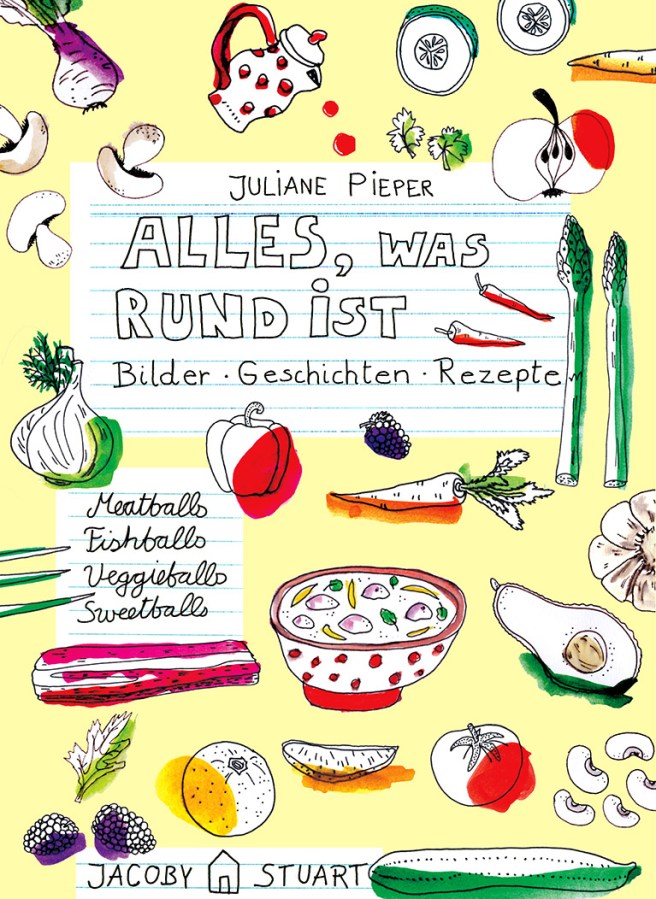 JULIANE PIEPER
ALLES, WAS
RUND IST
Bilder · Geschichten · Rezepte
Meatballs
Fishballs
Veggieballs
Sweetballs
JACOBY STUART